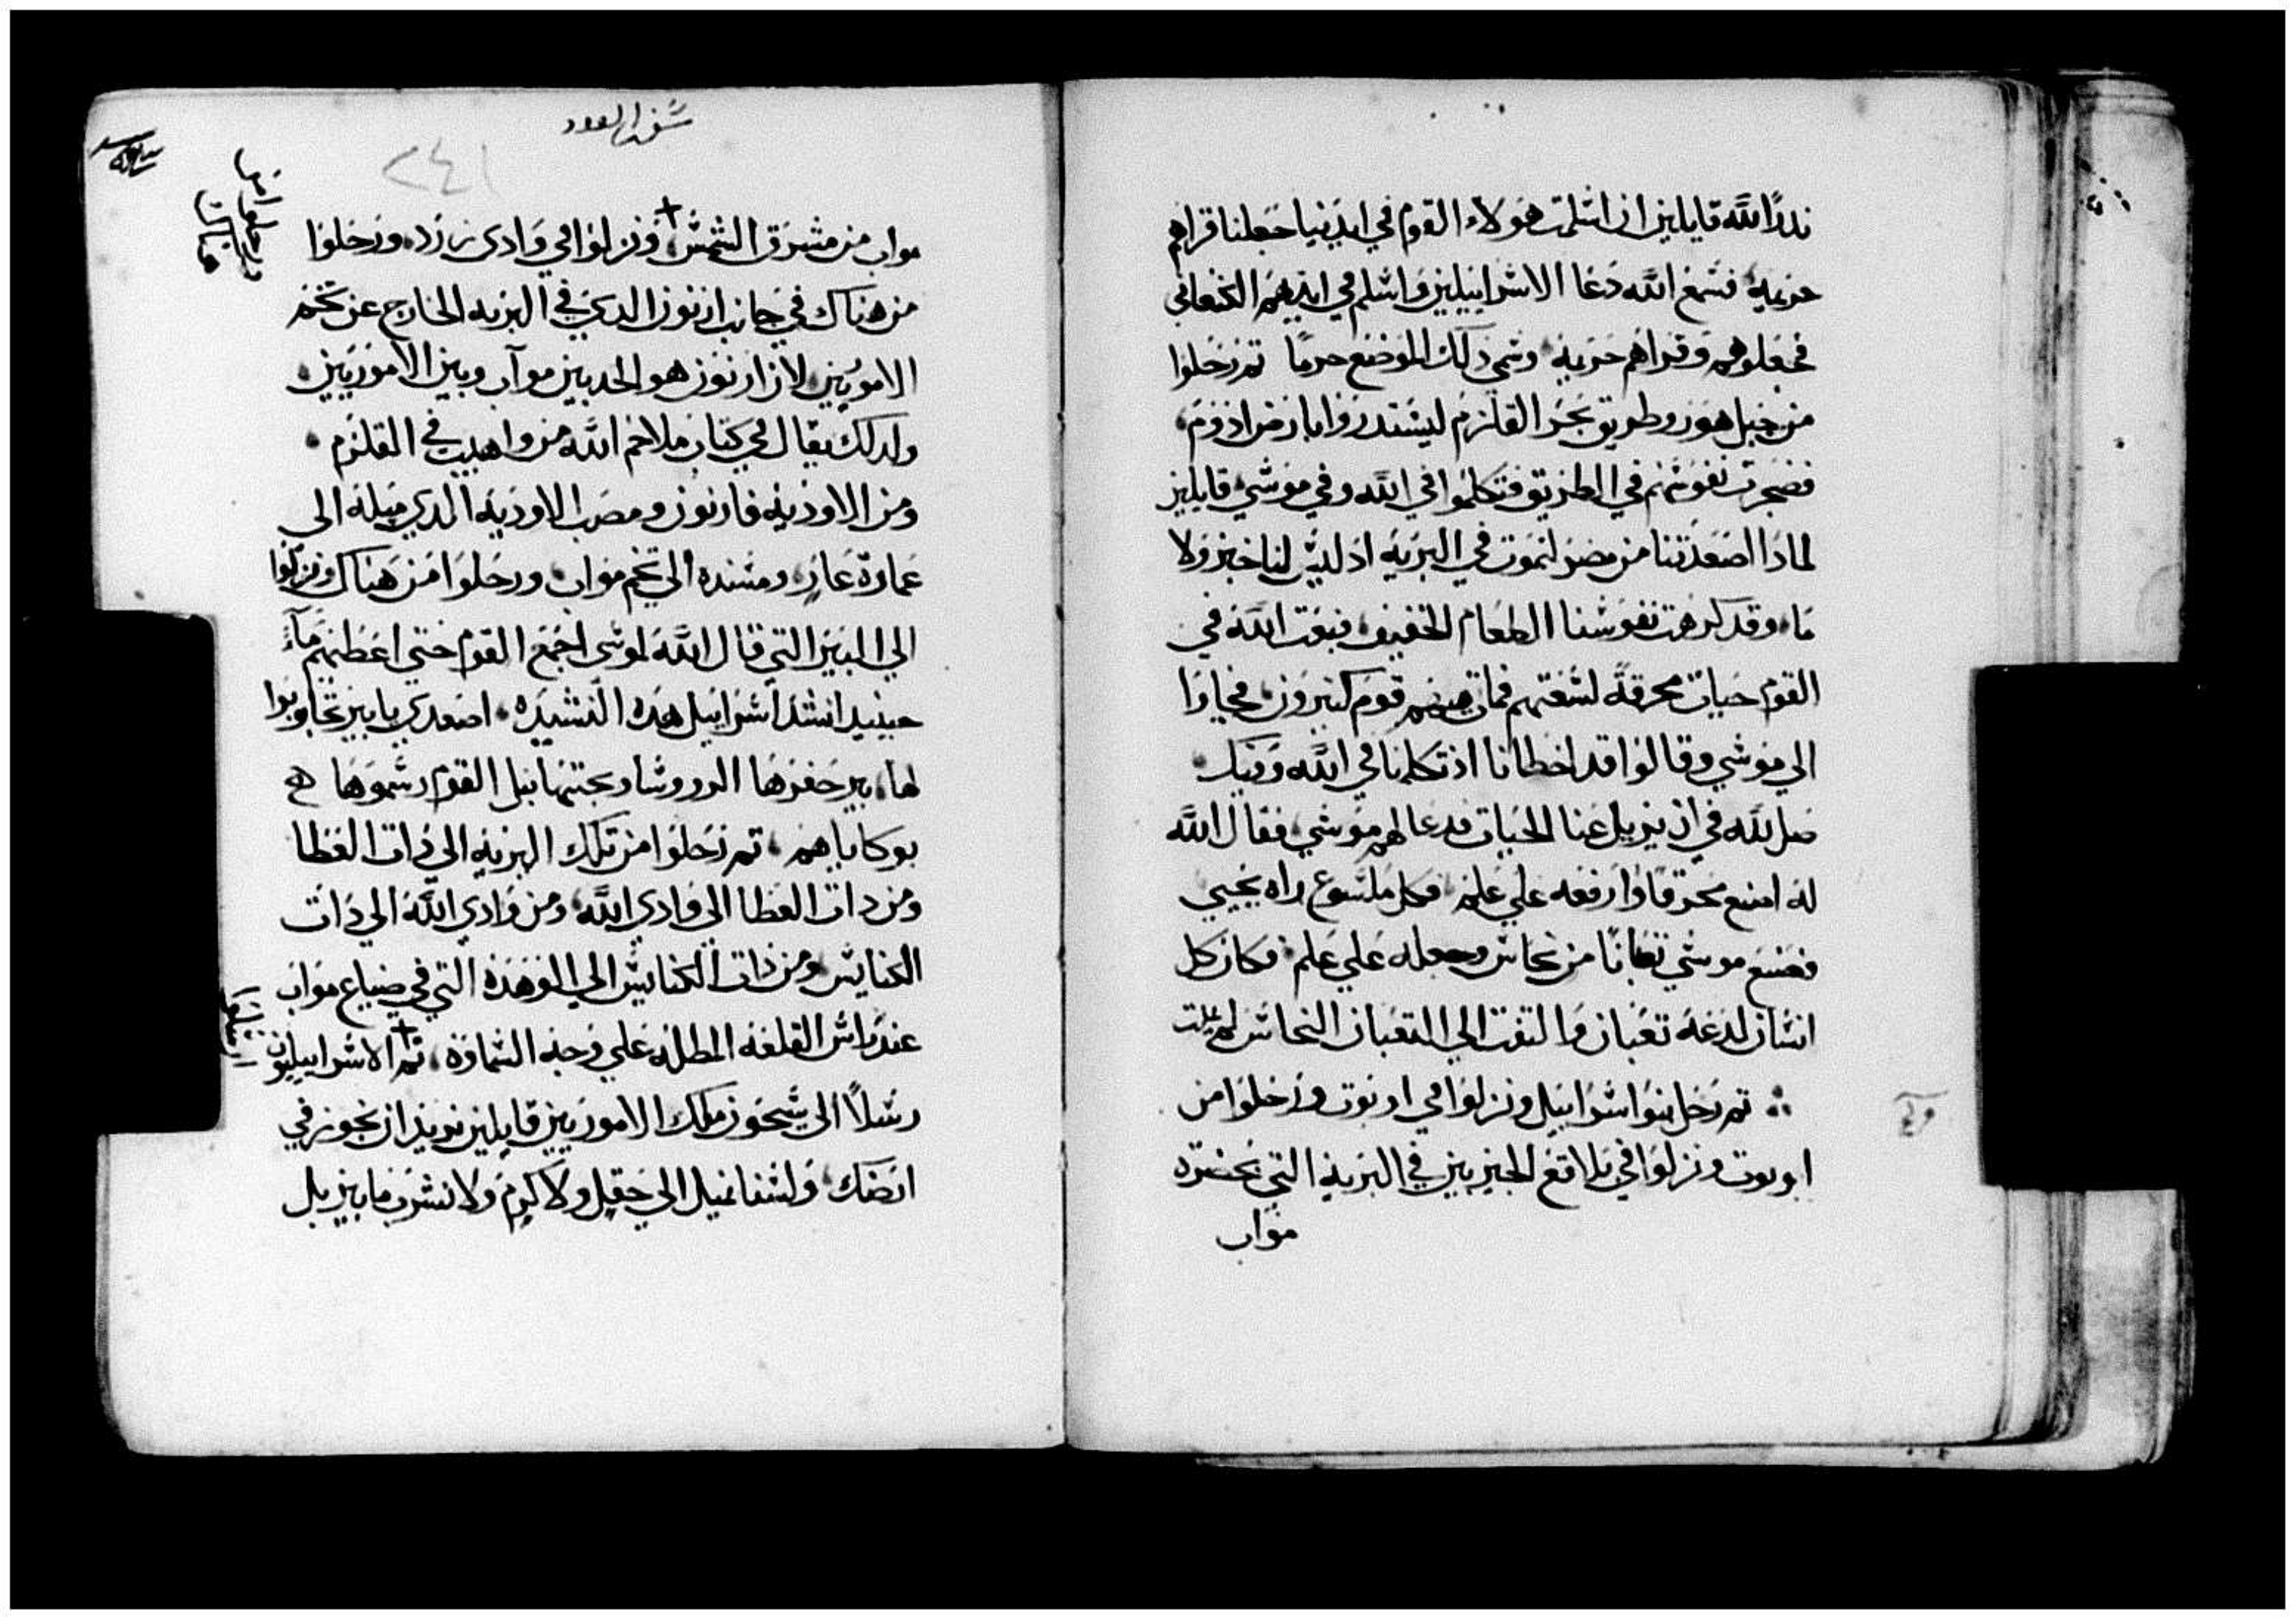 ندرًا لله قايلين ان اسلمت هولاء القوم في ايدينا جعلنا قراهم
حريمة فسمع الله دعا الاسراييليين واسلم في ايديهم الكنعاني
فجعلوهم وقراهم حريمة وسمي دلك الموضع حرمًا تم رحلوا
من جبل هور وطريق بحر القلزم ليستدروا بارض ادوم
فضجرت نفوسهم في الطريق فتكلموا في الله وفي موسي قايلين
لمادا اصعدتنا من مصر لنموت في البريه اد ليس لنا خبز ولا
ما وقد كرهت نفوسنا الطعام الخفيف فبعت الله في
القوم حيات محرقة لسعتهم فمات منهم قوم كتيرون فجاوا
الي موسي وقالوا قد اخطانا اد تكلمنا في الله وفيك
صل لله في ان يزيل عنا الحيات فدعا لهم موسي فقال الله
له اصنع محرقًا وارفعه علي علم فكل ملسوع راه يحيي
فصنع موسي تعبانًا من نحاس وجعله علي علم فكان كل
انسان لدغه تعبان والتفت الي التعبان النحاس لم يمت
تم رحل بنوا اسراييل ونزلوا في اوبوت ورحلوا من
اوبوت ونزلوا في تلاقع الجيزيين في البرية التي بحضرة
مواب
سفر العدد
٢٤١
مواب من مشرق الشمس ونزلوا في وادى زرد ورحلوا
من هناك في جانب ارنون الدي في البريه الخارج عن تخم
الاموريين لان ارنون هو الحد بين موآب وبين الاموريين
ولدلك يقال في كتاب ملاحم الله من واهيب في القلزم
ومن الاودية فارنون ومصب الاودية الدي ميله الى
عمارة عار ومسنده الي تخم مواب ورحلوا من هناك ونزلوا
الي البير التي قال الله لموسى اجمع القوم حتي اعطيهم مآء
حينيد انشد اسراييل هده النشيده اصعدي يا بير تجاوبوا
لها بير حفرها الرووسا وبجتها نبل القوم رسموها
بوكاياهم تم رحلوا من تلك البرية الي دات العطا
ومن دات العطا الي وادي الله ومن وادي الله الي دات
الكنايس ومن دات الكنايس الي الوهده التي في ضياع مواب
عند راس القلعة المطله علي وجه السماوة تم الاسراييليون
رسلاً الى سيحون ملك الاموريين قايلين نريد ان نجوز في
ارضك ولسنا نميل الي حقل ولا كرم ولا نشرب ما بير بل